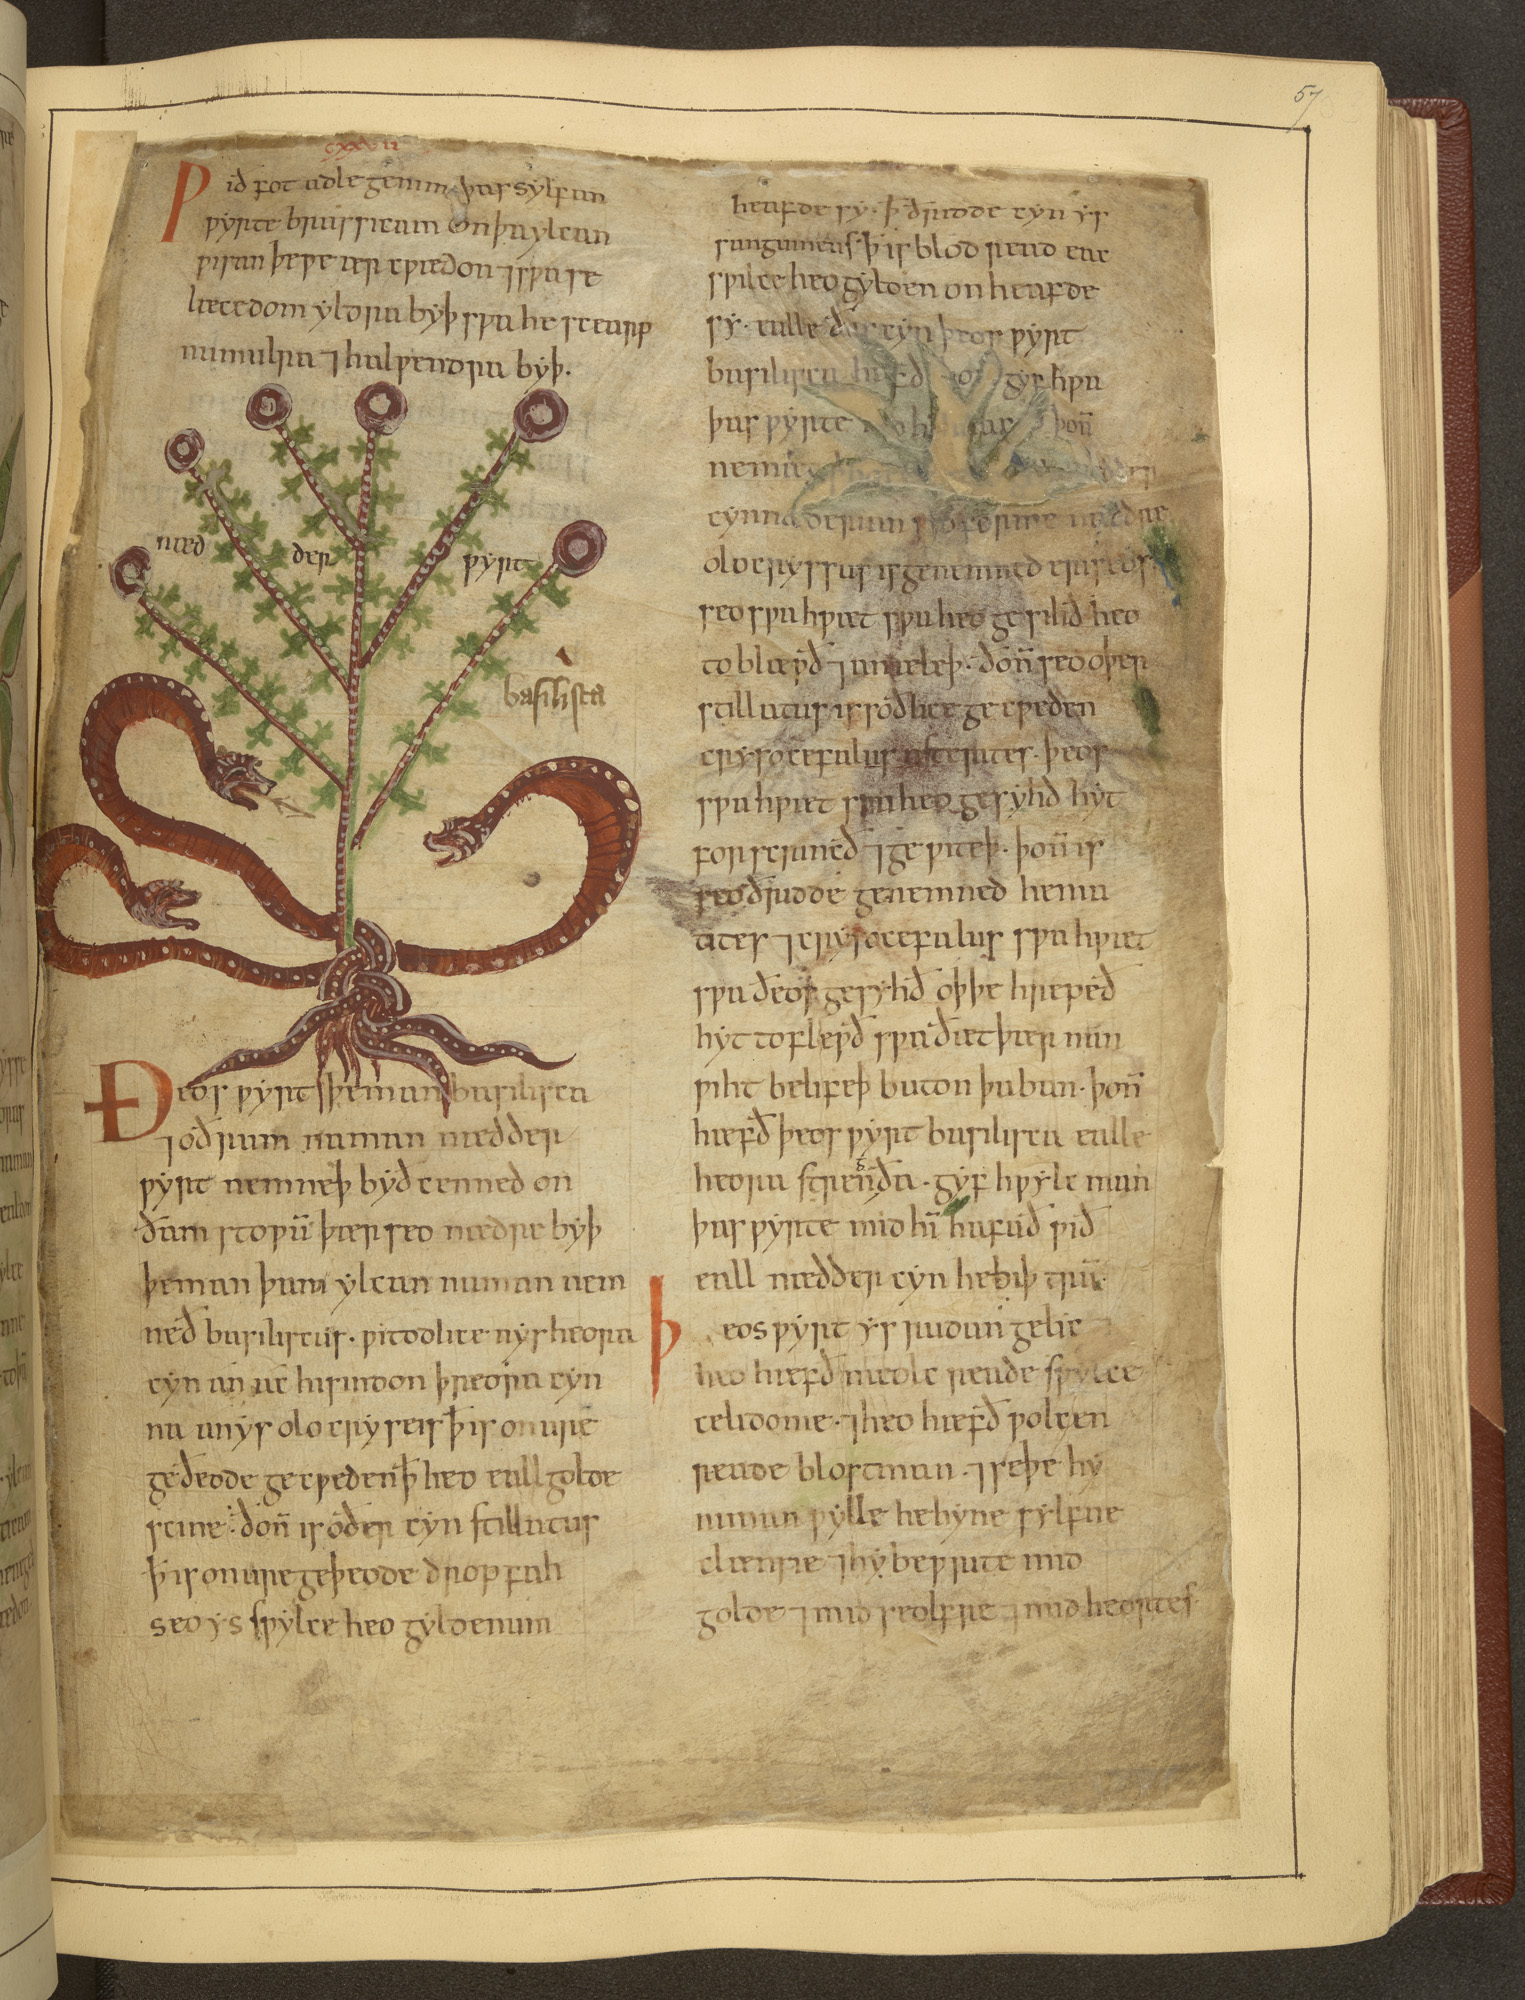 57
cxxvii
Ƿið fot adle genim þas sylfan
ƿyrte brassicam on þa ylcan
ƿisan þe ƿe ær cƿædon ⁊ sƿa se
læcedom yldra byþ sƿa he scearp
numulra ⁊ halƿendra byþ.
næd der ƿyrt
basilisca
Ðeos ƿyrt þe man basilisca
⁊ oðrum naman nædder
ƿyrt nemneþ byð cenned on
ðam stoƿū þær seo nædre byþ
þe man þam ylcan naman nem
neð basiliscus. ƿitodlice nys heora
cyn an ac hi sindon þreora cyn
na an ys olocryseis ꝥ is on ure
geðeode gecƿeden ꝥ heo eall golde
scine. ðoñ is oðer cyn stillatus
ꝥ is on ure geþeode dropfah
seo ys sƿylce heo gyldenum
heafde sy. ꝥ ðridde cyn ys
sanguineus ꝥ is blod read eac
sƿilce heo gylden on heafde
sy. ealle ðas cyn þeos ƿyrt
basilisca hæfð gyf hƿa
þas ƿyrte þoñ
ne mæg
cynna derian seo forme nædre
olocryssus is genemned criseos
seo sƿa hƿæt sƿa heo gesihð heo
toblæƿð ⁊ anæleþ. ðoñ seo oþer
stillatus is soðlice gecƿeden
crysocefalus asterites. þeos
sƿa hƿæt sƿa heo gesyhð hyt
forscrincð ⁊ geƿiteþ. þoñ is
seo ðridde genemned hema
tites ⁊ crysocefalus sƿa hƿæt
sƿa ðeos gesyhð oþþe hreƿeð
hyt tofleƿð sƿa ðæt þær nan
ƿiht belifeþ buton þa ban. þoñ
hæfð þeos ƿyrt basilisca ealle
heora strengða. gyf hƿylc man
þas ƿyrte mid hī hafað ƿið
eall nædder cyn he biþ trū.
Þeos ƿyrt ys rudan gelic
heo hæfð meolc reade sƿylce
celidonie. ⁊ heo hæfð ƿolcen
reade blostman. ⁊ se þe hy
niman ƿylle he hyne sylfne
clænsie ⁊ hy beƿrite mid
golde ⁊ mid seolfre ⁊ mid heortes